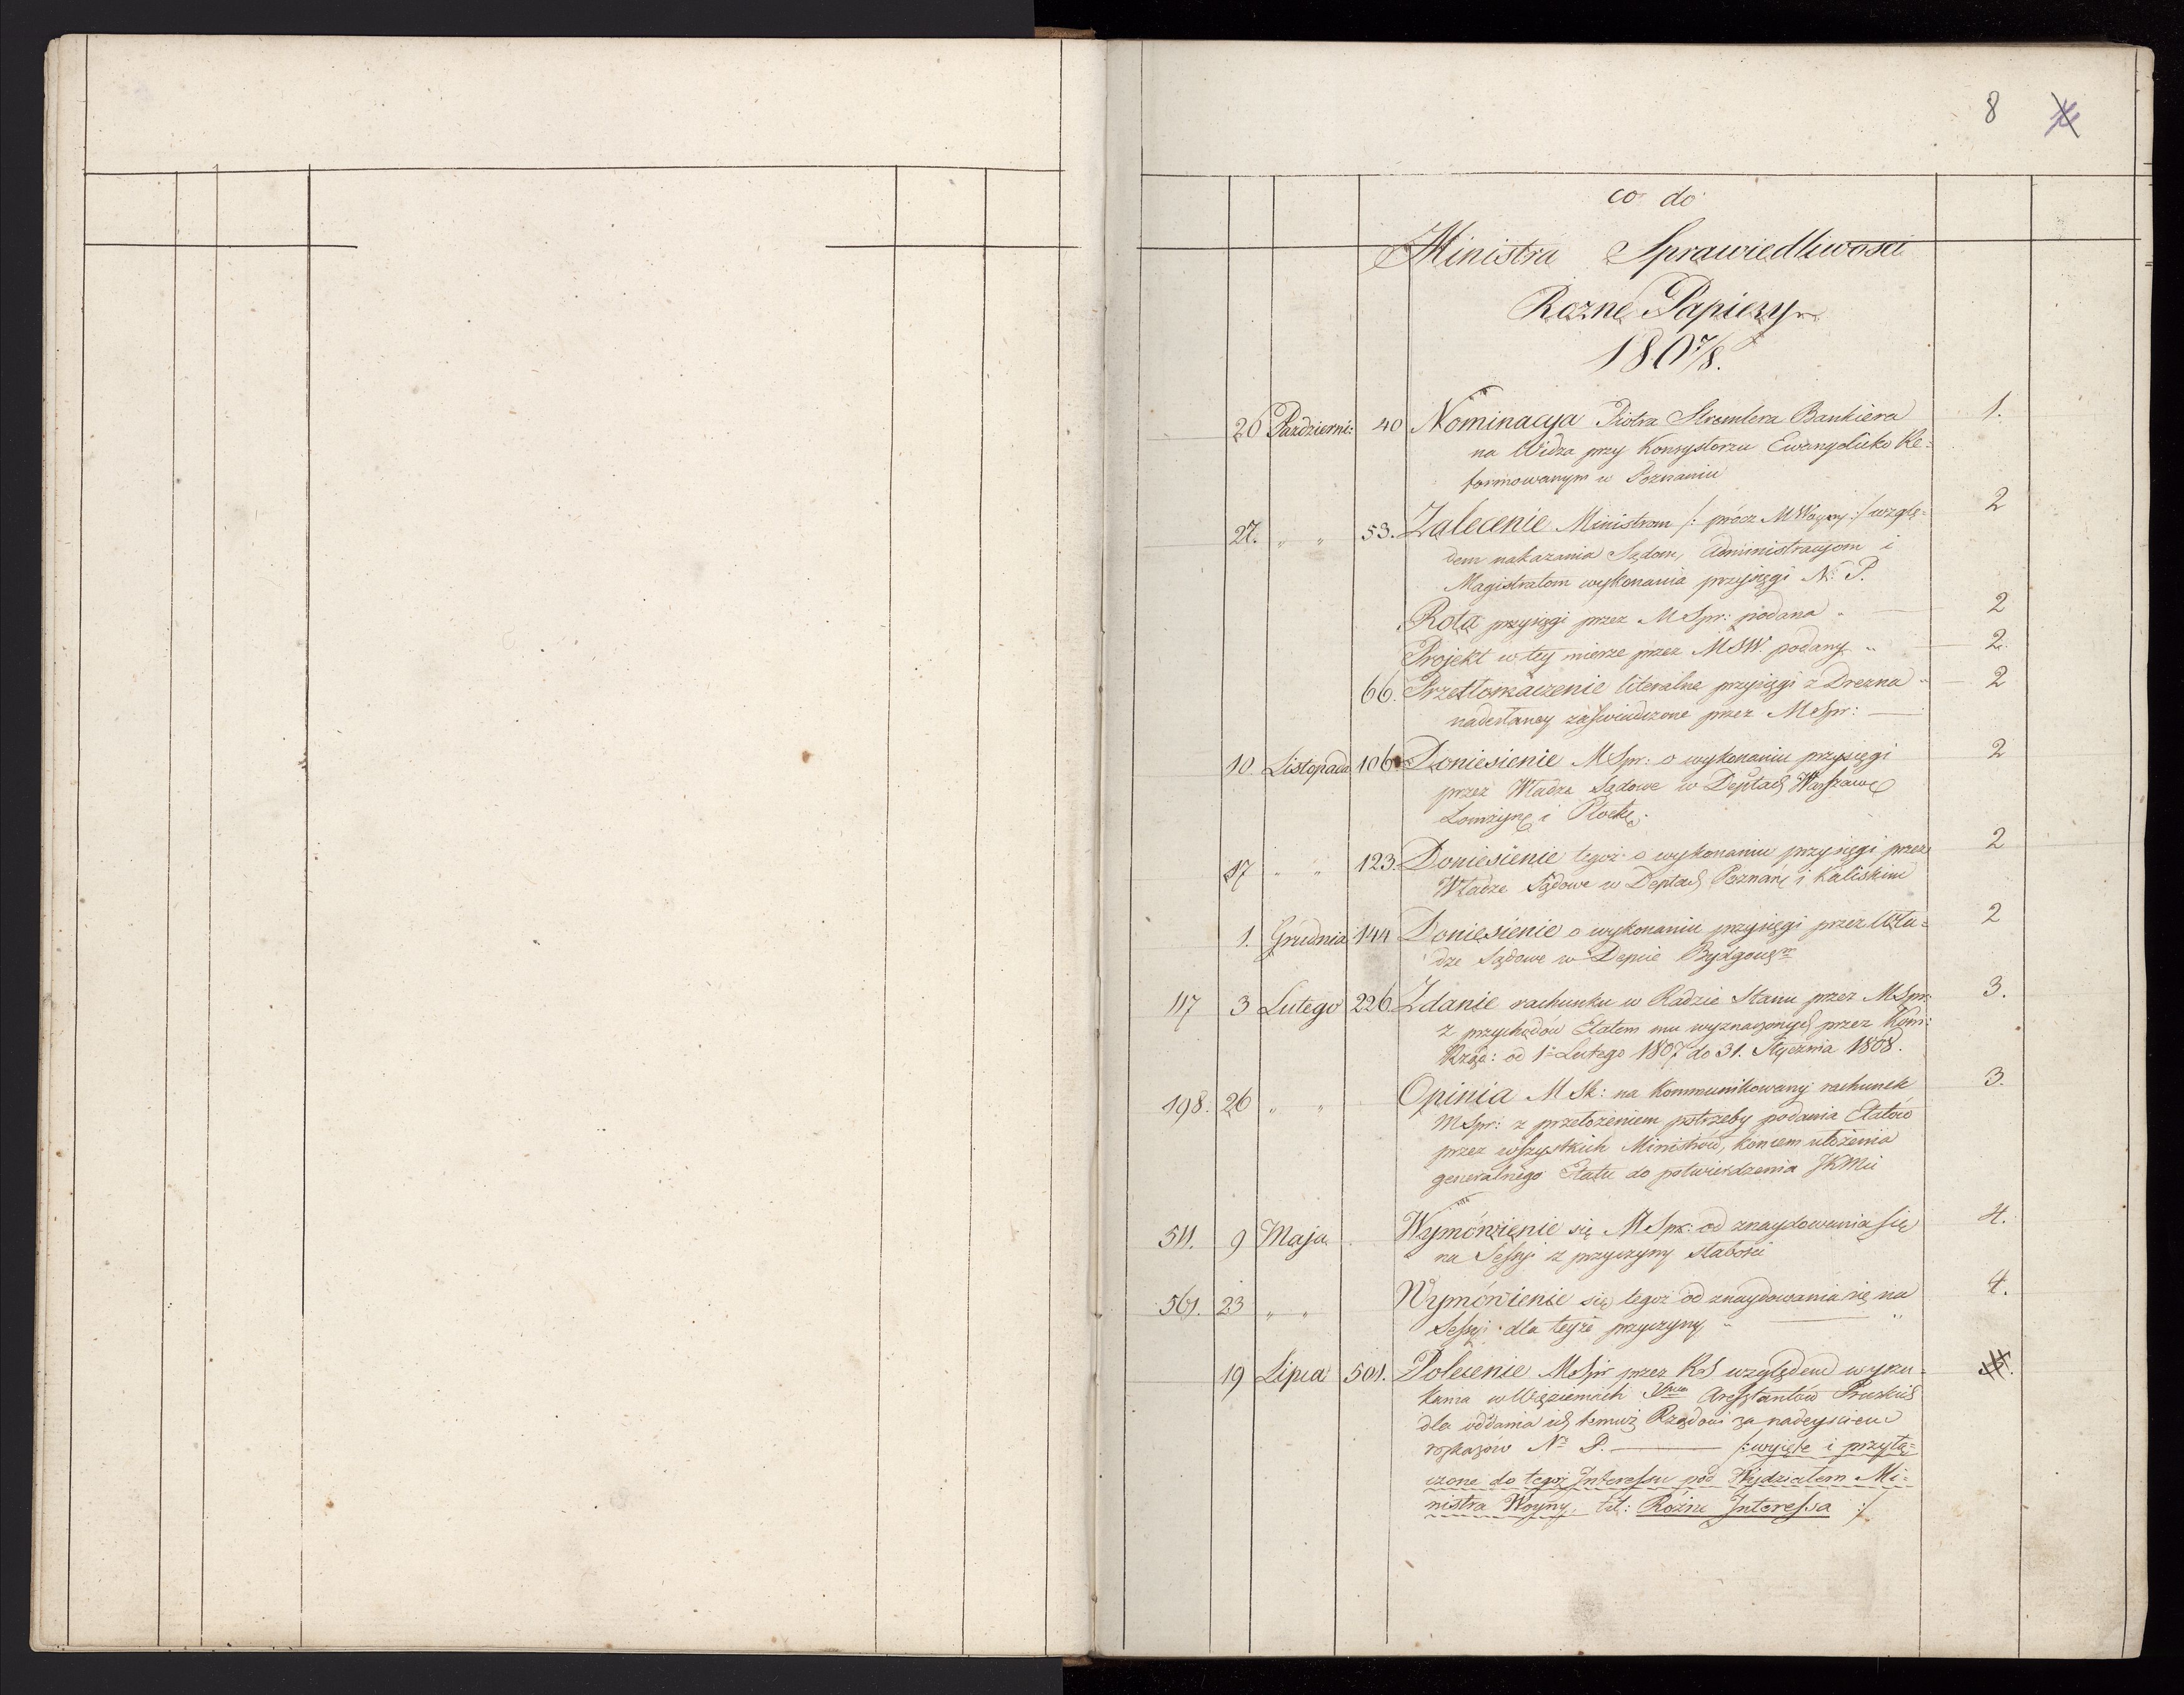 8
co do
Ministra Sprawiedliwosci
Rozne Papiery
1807/8.
26 Pazdzierni: 40 Nominacya Piotra Stremlera Bankiera 1.
na Widza przy Konsystorzu Ewangelicko Re=
formowanym w Poznaniu
27. " " 53. Zalecenie Ministrom /: prócz MWoyny :/ wzglę= 2
dem nakazania Sądom, Administracyom i
Magistratom wykonania przysięgi N: P.
Rota przysięgi przez MSpr: podana " 2
Projekt w tey mierze przez MSW. podany " 2.
66. Przetłomaczenie literalne przysięgi z Drezna " 2
nadesłaney zaświadczone przez MSpr:
10. Listopada 106 Doniesienie MSpr: o wykonaniu przysięgi 2
przez Władze Sądowe w Deptach Warszaw
Łomżyń i Płock
17 " " 123. Doniesienie tegoż o wykonaniu przysięgi przez 2
Władze Sądowe w Deptach Poznań i Kaliskim
1. Grudnia 144 Doniesienie o wykonaniu przysięgi przez Wła= 2
dze Sądowe w Depcie Bydgou
117 3 Lutego 226. Zdanie rachunku w Radzie Stanu przez MSpr: 3.
z przychodów Etatem mu wyznaczonych przez Kom:
Rząd: od 1o Lutego 1807 do 31. Stycznia 1808.
198. 26 " " Opinia M Sk: na kommunikowany rachunek 3.
MSpr: z przełożeniem potrzeby podania Etatów
przez wszystkich Ministrów, końcem ułożenia
generalnego Etatu do potwierdzenia JKMci
511. 9 Maja Wymówienie się MSpr: od znaydowania się 4.
na Sessyi z przyczyny słabości
561. 23 " " Wymówienie się tegoż od znaydowania się na 4.
Sessyi dla teyże przyczyny " "
19 Lipca 501. Polecenie MSpr przez RS względem wyszu=
kania w Więzieniach Aresztantów Pruskich
dla oddania ich temuż Rządowi za nadeyściem
rozkazów No P. /: wyięte i przyłą=
czone do tegoż Interessu pod Wydziałem Mi=
nistra Woyny, tit: Rożne Interessa :/